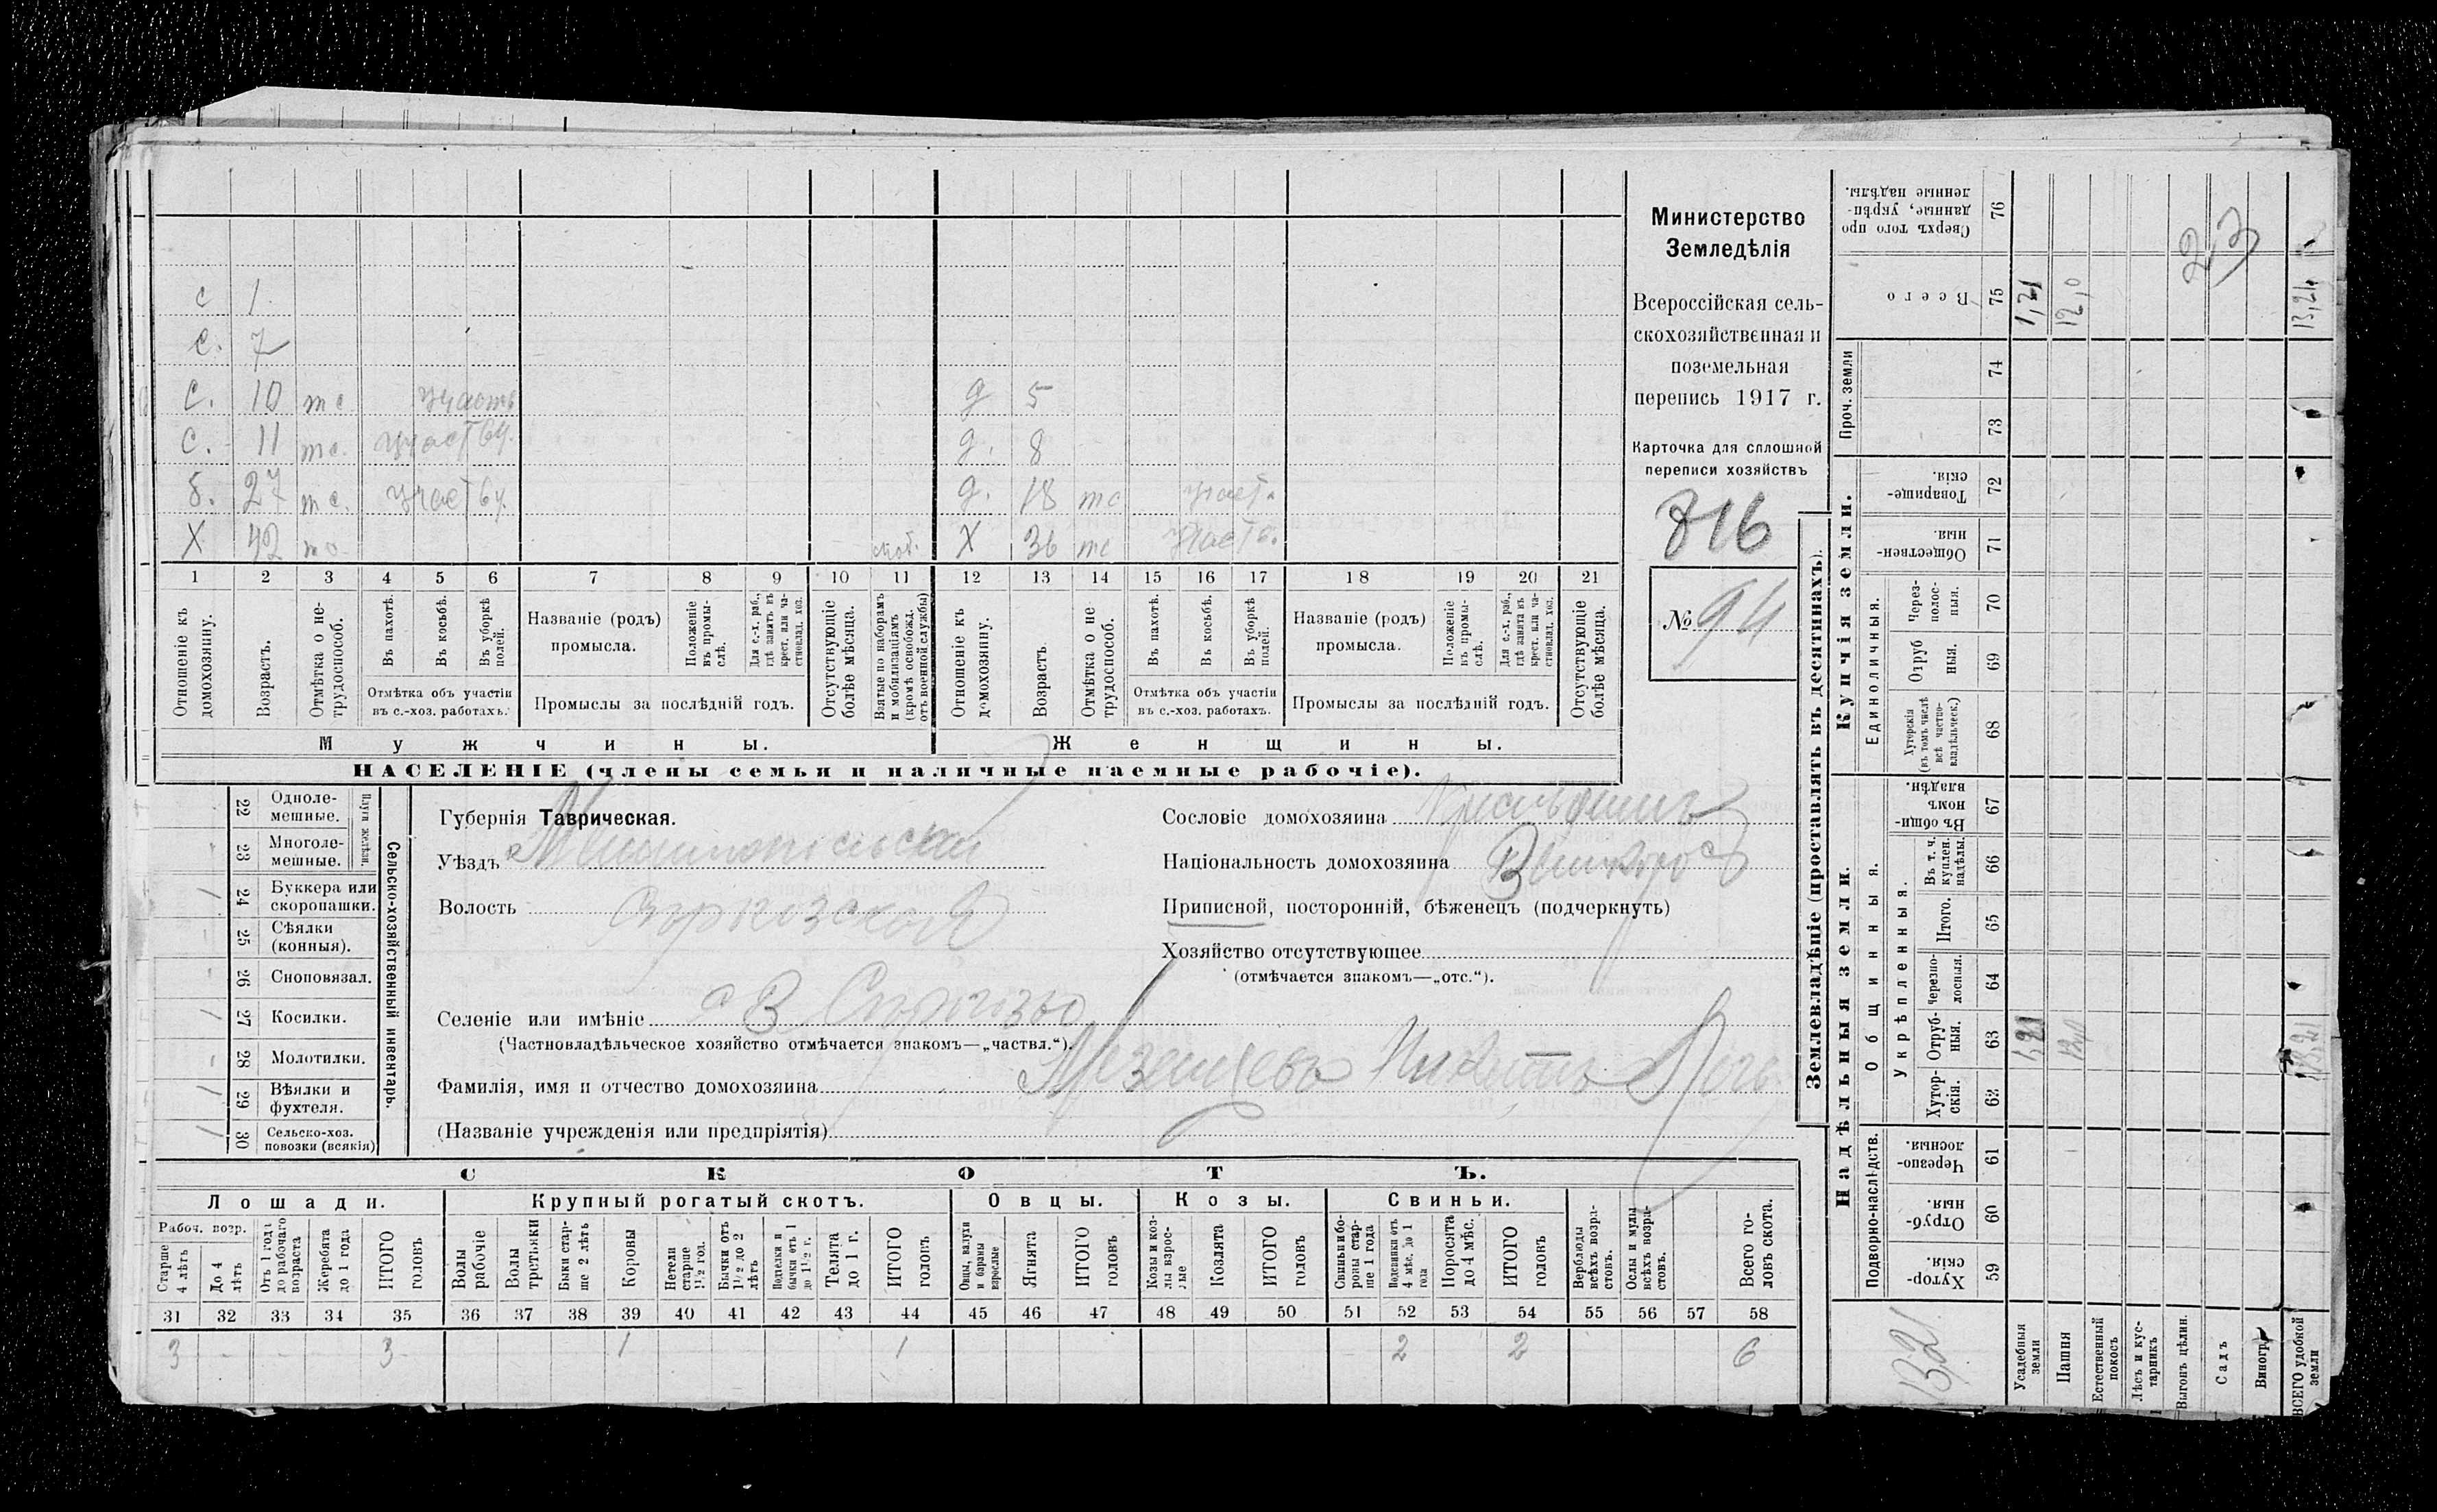 с 1.
с. 7
с. 10 тс участь
с. 11 тс. участ бу.
б. 27 тс. участ бу.
Х 42 тс моб.
д 5
д. 8
д. 18 тс участ.
Х 36 тс
1 2 3 4 5 6 7 8 9 10 11 12 13 14 15 16 17 18 19 20 21
Отношеніе къ домохозяину.
Возрастъ.
Отмѣтка о нетрудоспособ.
Въ пахотѣ.
Въ косьбѣ.
Въ уборкѣ полей.
Отмѣтка объ участіи
въ с.-хоз. работахъ.
Названіе (родъ)
промысла.
Положеніе въ промыслѣ.
Для с.-х. раб., гдѣ занятъ въ крест. или частновлад. хоз.
Промыслы за послѣдній годъ.
Отсутствующіе болѣе мѣсяца.
Взятые по наборамъ и мобилизаціямъ (кромѣ освобожд. отъ военной службы)
Отношеніе къ домохозяину.
Возрастъ.
Отмѣтка о нетрудоспособ.
Въ пахотѣ.
Въ косьбѣ.
Въ уборкѣ полей.
Отмѣтка объ участіи
въ с.-хоз. работахъ.
Названіе (родъ)
промысла.
Положеніе въ промыслѣ.
Для с.-х. раб., гдѣ занята въ крест. или частновлад. хоз.
Промыслы за послѣдній годъ.
Отсутствующіе болѣе мѣсяца.
Мужчины.
Женщины.
НАСЕЛЕНІЕ (члены семьи и наличные наемные рабочіе).
Министерство
Земледѣлія
Всероссійская сель-
скохозяйственная и
поземельная
перепись 1917 г.
Карточка для сплошной
переписи хозяйствъ
816
№ 94
22 Одноле-
мешные.
23 Многоле-
мешные.
Плуги желѣзн.
1 24 Буккера или
скоропашки.
25 Сѣялки
(конныя).
26 Сноповязал.
1 27 Косилки.
28 Молотилки.
1 29 Вѣялки и
фухтеля.
1 30 Сельско-хоз.
повозки (всякія)
Сельско-хозяйственный инвентарь.
Губернія Таврическая.
Уѣздъ
Волость
Селеніе или имѣніе
(Частновладѣльческое хозяйство отмѣчается знакомъ—„частвл.“).
Фамилія, имя и отчество домохозяина
(Названіе учрежденія или предпріятія)
Сословіе домохозяина
Національность домохозяина
Приписной, посторонній, бѣженецъ (подчеркнуть)
Хозяйство отсутствующее
(отмѣчается знакомъ—„отс.“).
СКОТЪ.
Лошади. Крупный рогатый скотъ. Овцы. Козы. Свиньи.
Рабоч. возр.
Старше 4 лѣтъ
До 4 лѣтъ
Отъ 1 года до рабочаго возраста
Жеребята до 1 года
ИТОГО головъ
Волы рабочіе
Волы третьяки
Быки старше 2 лѣтъ
Коровы
Нетели старше 1½ год.
Бычки отъ 1½ до 2 лѣтъ
Подтелки и бычки отъ 1 до 1½ г.
Телята до 1 г.
ИТОГО головъ
Овцы, валухи и бараны взрослые
Ягнята
ИТОГО головъ
Козы и козлы взрослые
Козлята
ИТОГО головъ
Свиньи и бороны старше 1 года
Подсвинки отъ 4 мѣс. до 1 года
Поросята до 4 мѣс.
ИТОГО головъ
Верблюды всѣхъ возрастовъ.
Ослы и мулы всѣхъ возрастовъ.
Всего головъ скота.
31 32 33 34 35 36 37 38 39 40 41 42 43 44 45 46 47 48 49 50 51 52 53 54 55 56 57 58
3 3 1 1 2 2 6
Землевладѣніе (проставлять въ десятинахъ).
Надѣльныя земли.
Купчія земли.
Подворно-наслѣдств.
Общинныя.
Укрѣпленныя.
Единоличныя.
Проч. земли
Хуторскія. 59
Отрубныя. 60
Черезполосныя. 61
Хуторскія. 62
Отрубныя. 63
Черезполосныя. 64
Итого. 65
Въ т. ч. куплен. надѣлы. 66
Въ общинномъ владѣн. 67
Хуторскія (въ томъ числѣ всѣ частновладѣльческ.) 68
Отрубныя. 69
Черезполосныя. 70
Общественныя. 71
Товарищескія. 72
73
74
Всего 75
Сверхъ того проданные, укрѣпленные надѣлы. 76
Усадебныя земли 1,21 1,21
Пашня 12,0 12,0
Естественный покосъ
Лѣсъ и кустарникъ
Выгонъ цѣлин.
Садъ
Виногр.
ВСЕГО удобной земли 13,21 13,21
13,21
23